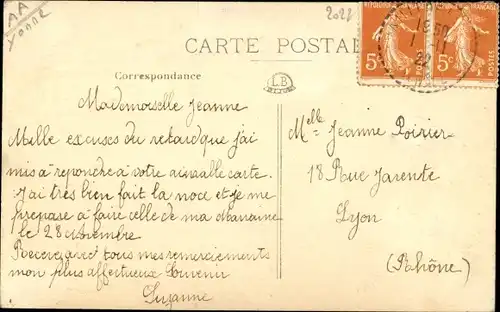 AA
Yonne
2022
CARTE POSTALE
Correspondance
LB
Mademoiselle Jeanne
Mille excuses du retard que j'ai
mis à reponche à votre aimable carte.
J'ai très bien fait la noce et je me
prepare à faire celle de ma
le 28
Recevez avec tous mes remerciements
mon plus affectueux Souvenir
Suzanne
REPUBLIQUE FRANÇAISE
5c
POSTES
5c
POSTES
18 50
1 - 11
22
Melle Jeanne Poirier
18 Rue Jarente
Lyon
(Rhône)